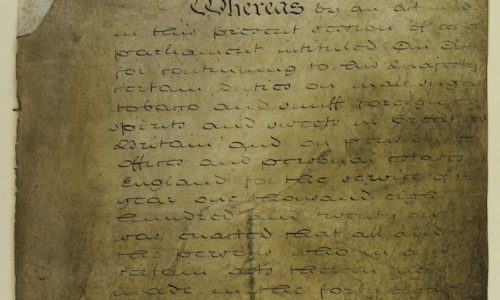 Whereas by an act
in this present session of
parliament intituled An Act
for continuing to his Majesty
certain duties on malt sugar
tobacco and snuff foreign
spirits and sweets in Great
Britain and on pensions
offices and personal estates
England for the service of the
year one thousand eight
hundred and twenty
was enacted that all
the persons who in
certain acts therein
made in the forty eighth